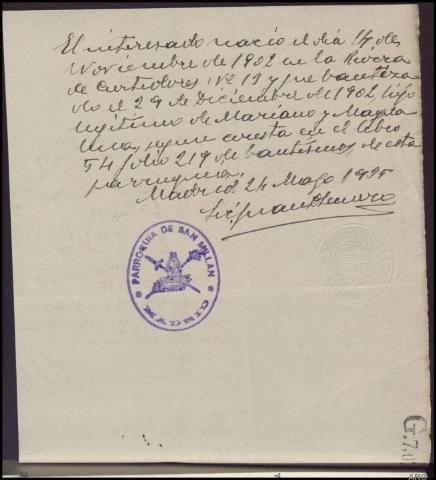 El interesado nació el día 14 de
Noviembre de 1902 en la Rivera
de Curtidores, Nº 13 y fue bautiza
do el 29 de Diciembre de 1902, hijo
legítimo de Mariano y Magda
lena, segun consta en el libro
54 folio 219 de bautismos, de esta
parroquia.
Madrid 24 Mayo 1925
PARROQUIA DE SAN MILLAN
MADRID
G.7.0